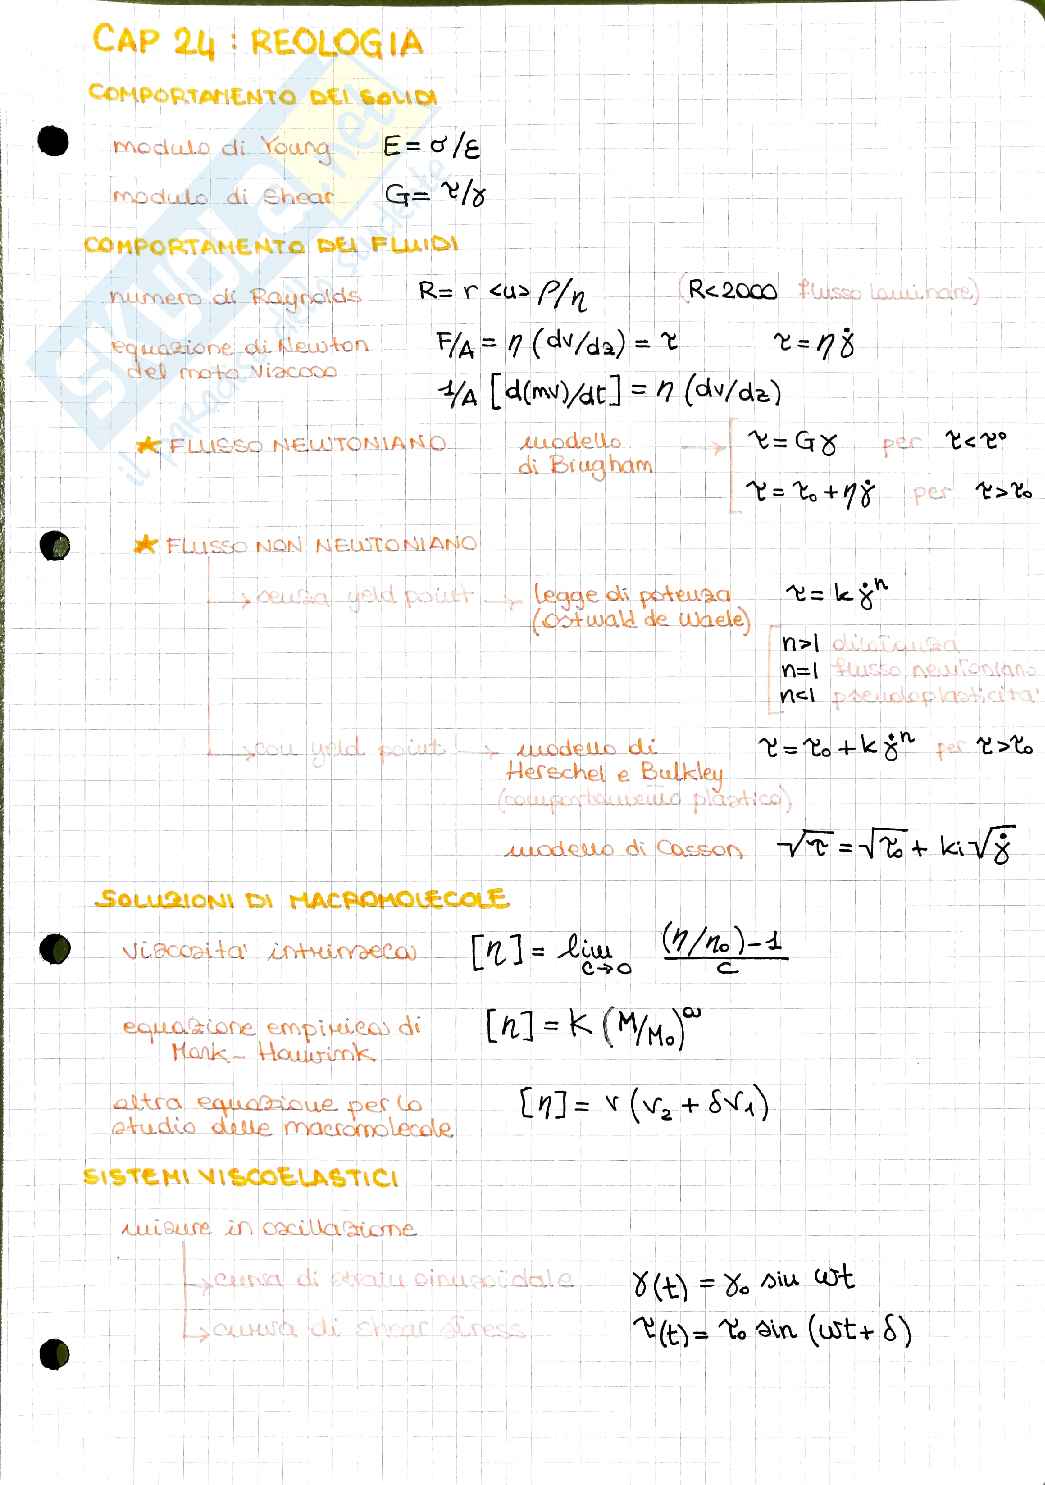 CAP 24 : REOLOGIA
COMPORTAMENTO DEI SOLIDI
modulo di Young E = σ/ε
modulo di Shear G = τ/γ
COMPORTAMENTO DEI FLUIDI
numero di Raynolds R = r <u> ρ/η (R<2000 flusso laminare)
equazione di Newton F/A = η (dv/dz) = τ τ = η γ̇
del moto viscoso
1/A [d(mv)/dt] = η (dv/dz)
★ FLUSSO NEWTONIANO modello → τ = Gγ per τ<τ°
di Bingham
τ = τ₀ + ηγ̇ per τ>τ₀
★ FLUSSO NON NEWTONIANO
→ senza yeld point → legge di potenza τ = k γ̇ⁿ
(Ostwald de Waele)
n>1 dilatanza
n=1 flusso newtoniano
n<1 pseudoplasticita'
→ con yeld point → modello di τ = τ₀ + k γ̇ⁿ per τ>τ₀
Herschel e Bulkley
(comportamento plastico)
modello di Casson √τ = √τ₀ + ki √γ̇
SOLUZIONI DI MACROMOLECOLE
viscosita' intrinseca [η] = lim c→0 (η/η₀)-1 / c
equazione empirica di [η] = K (M/M₀)ᵅ
Mark - Houwink
altra equazione per lo [η] = v (v₂ + δv₁)
studio delle macromolecole
SISTEMI VISCOELASTICI
misure in oscillazione
→ curva di strain sinusoidale γ(t) = γ₀ sin ωt
→ curva di shear stress τ(t) = τ₀ sin (ωt + δ)
SKUOLA.net
il paradiso dello studente